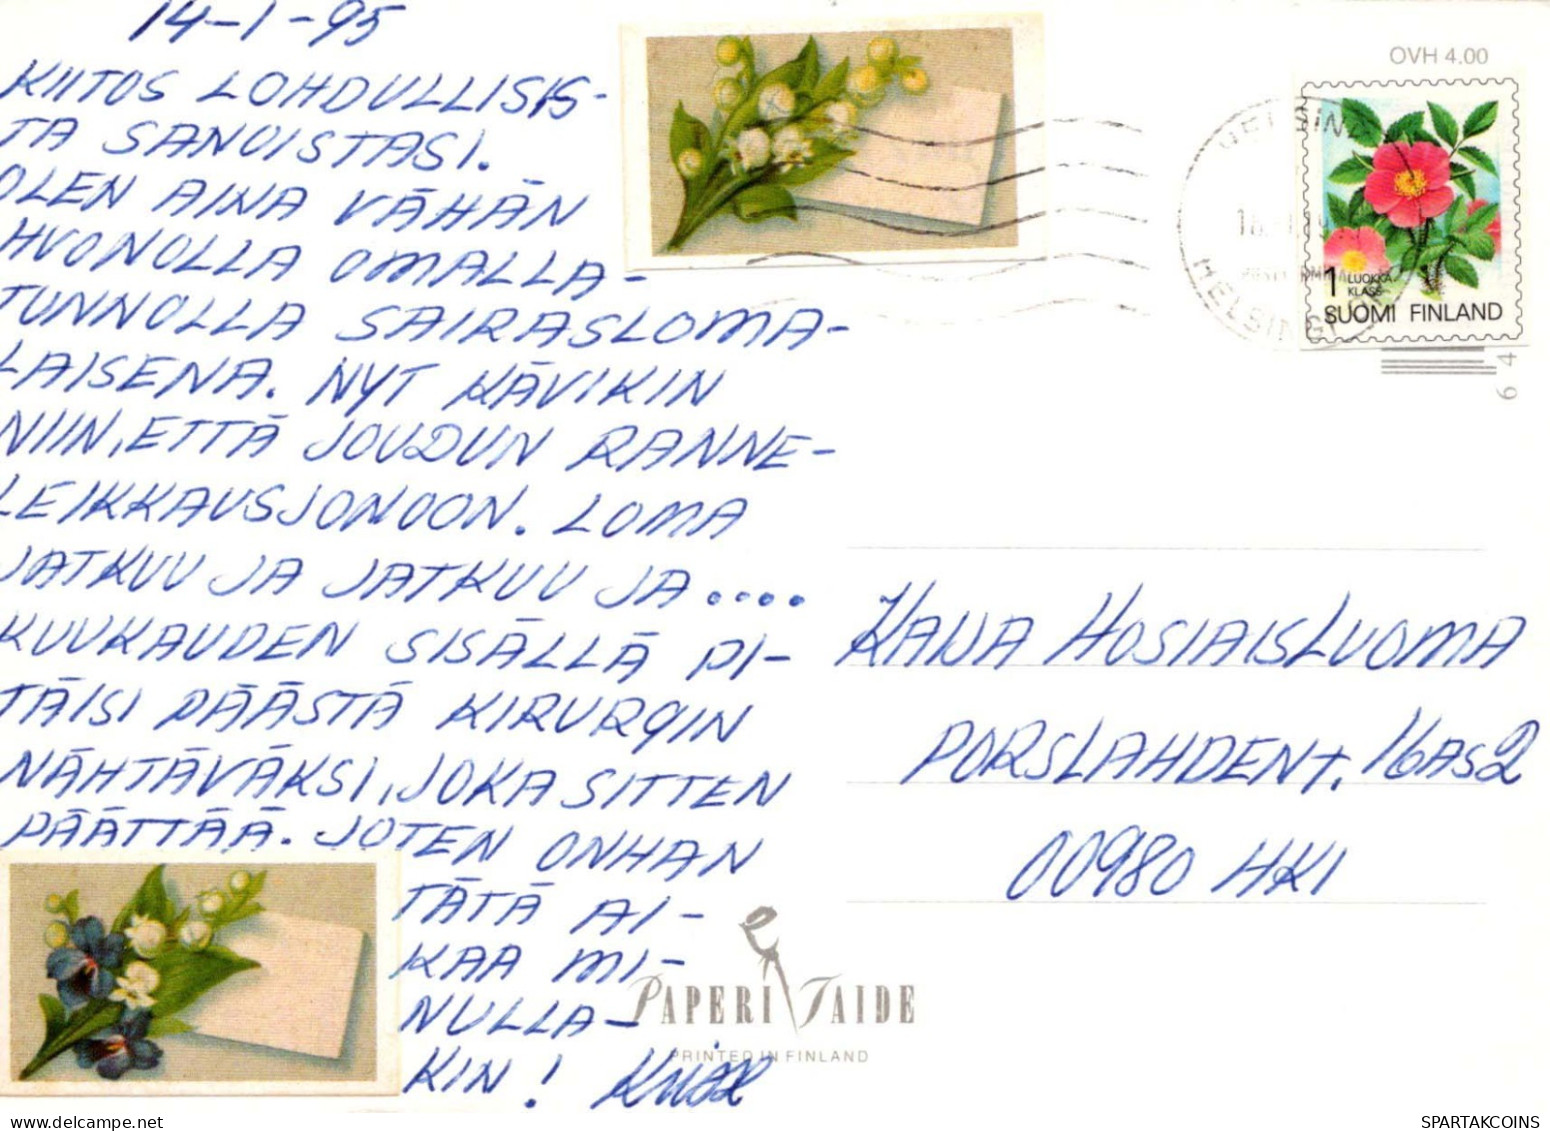 14-1-95
KIITOS LOHDULLISIS-
TA SANOISTASI.
OLEN AINA VÄHÄN
HUONOLLA OMALLA-
TUNNOLLA SAIRASLOMA-
LAISENA. NYT KÄVIKIN
NIIN, ETTÄ JOUDUN RANNE-
LEIKKAUSJONOON. LOMA
JATKUU JA JATKUU JA....
KUUKAUDEN SISÄLLÄ PI-
TÄISI PÄÄSTÄ KIRURGIN
NÄHTÄVÄKSI, JOKA SITTEN
PÄÄTTÄÄ. JOTEN ONHAN
TÄTÄ AI-
KAA MI-
NULLA-
KIN!
OVH 4.00
HELSINKI
HELSINGFORS
1 LUOKKA
KLASS
SUOMI FINLAND
6 4
KAIJA HOSIAISLUOMA
PORSLAHDENT. 16 AS 2
00980 HKI
PAPERI TAIDE
PRINTED IN FINLAND
SPARTAKCOINS